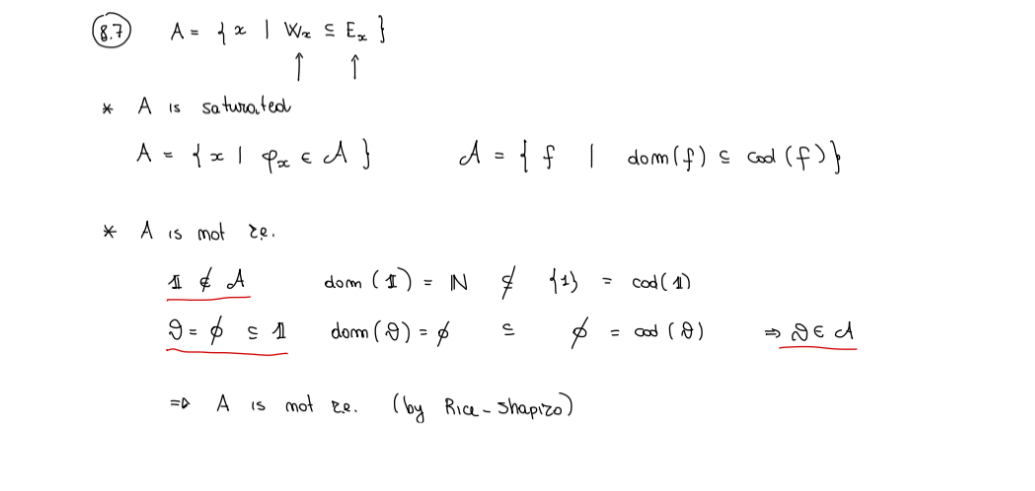 8.7 A = { x | Wx ⊆ Ex }
↑ ↑
* A is saturated
A = { x | φx ∈ 𝒜 } 𝒜 = { f | dom(f) ⊆ cod(f) }
* A is not r.e.
𝟙 ∉ A dom(𝟙) = ℕ ⊄ {1} = cod(𝟙)
ϑ = ∅ ⊆ 𝟙 dom(ϑ) = ∅ ⊆ ∅ = cod(ϑ) ⇒ ϑ ∈ 𝒜
⇒ A is not r.e. (by Rice-Shapiro)